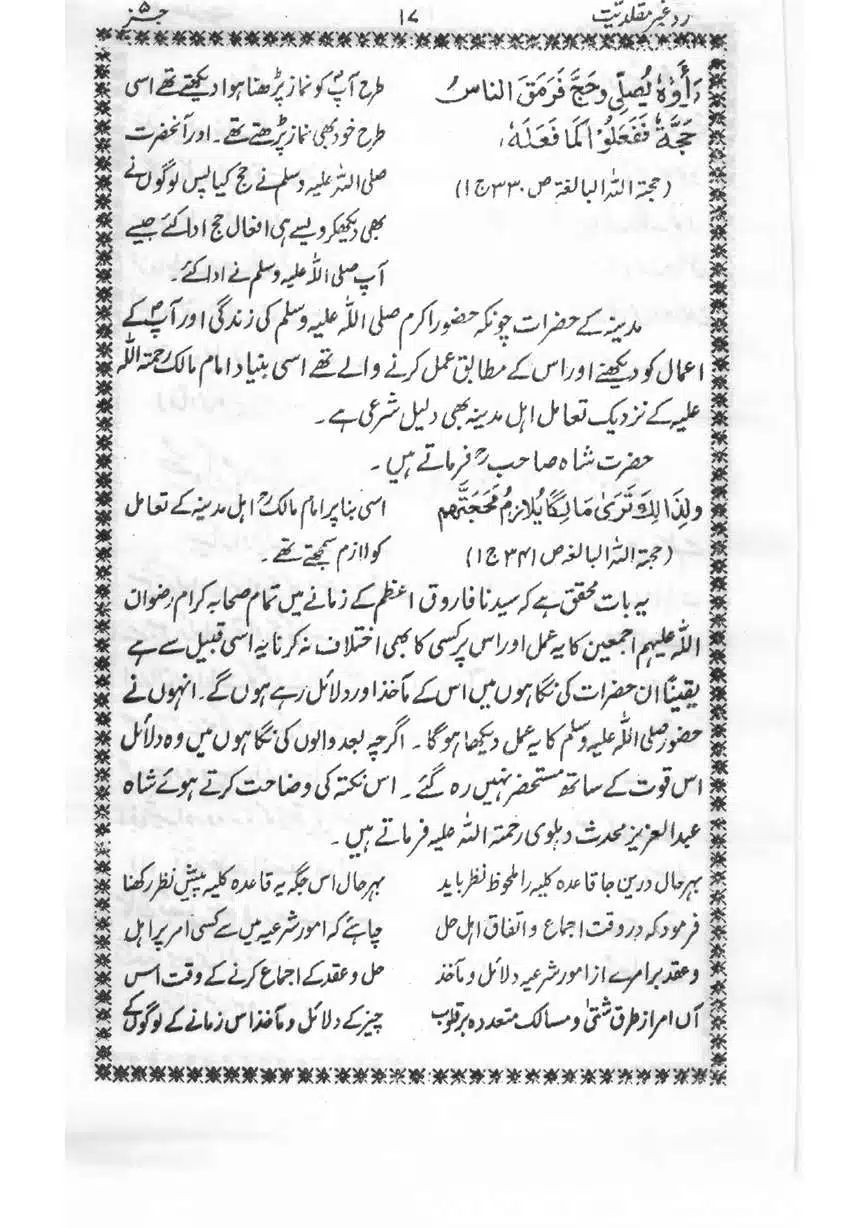 رد غیر مقلدیت ۱۷ جز ۵
رَأَوْهُ يُصَلِّى وحَجَّ فَرَمَقَ الناسُ
حَجَّهُ فَفَعَلُوْا كَمَا فَعَلَهُ،
(حجۃ اللہ البالغۃ ص ۳۳۰ ج ۱)
طرح آپؐ کو نماز پڑھتا ہوا دیکھتے تھے اسی
طرح خود بھی نماز پڑھتے تھے۔ اور آنحضرت
صلی اللہ علیہ وسلم نے حج کیا پس لوگوں نے
بھی دیکھکر ویسے ہی افعال حج ادا کئے جیسے
آپ صلی اللہ علیہ وسلم نے ادا کئے۔
مدینہ کے حضرات چونکہ حضور اکرم صلی اللہ علیہ وسلم کی زندگی اور آپؐ کے
اعمال کو دیکھنے اور اس کے مطابق عمل کرنے والے تھے اسی بنیاد امام مالک رحمۃ اللہ
علیہ کے نزدیک تعامل اہل مدینہ بھی دلیل شرعی ہے۔
حضرت شاہ صاحبؒ فرماتے ہیں۔
ولِذَالِكَ تَرَىٰ مَالِكًا يُلَازِمُ مَحَجَّتَهم
(حجۃ اللہ البالغہ ص ۳۴۱ ج ۱)
اسی بنا پر امام مالکؒ اہل مدینہ کے تعامل
کو لازم سمجھتے تھے۔
یہ بات محقق ہے کہ سیدنا فاروق اعظم کے زمانے میں تمام صحابہ کرام رضوان
اللہ علیہم اجمعین کا یہ عمل اور اس پر کسی کا بھی اختلاف نہ کرنا یہ اسی قبیل سے ہے
یقیناً ان حضرات کی نگاہوں میں اس کے مآخذ اور دلائل رہے ہوں گے۔ انہوں نے
حضور صلی اللہ علیہ وسلم کا یہ عمل دیکھا ہوگا۔ اگرچہ بعد والوں کی نگاہوں میں وہ دلائل
اس قوت کے ساتھ مستحضر نہیں رہ گئے۔ اس نکتہ کی وضاحت کرتے ہوئے شاہ
عبدالعزیز محدث دہلوی رحمۃ اللہ علیہ فرماتے ہیں۔
بہرحال درین جا قاعدہ کلیہ را ملحوظ نظر باید
فرمود کہ در وقت اجماع و اتفاق اہل حل
وعقد برامرے از امور شرعیہ دلائل و مآخذ
آں امر از طرق شتیٰ و مسالک متعددہ بر قلوب
بہرحال اس جگہ یہ قاعدہ کلیہ پیش نظر رکھنا
چاہئے کہ امور شرعیہ میں سے کسی امر پر اہل
حل و عقد کے اجماع کرنے کے وقت اس
چیز کے دلائل و مآخذ اس زمانے کے لوگوں کے